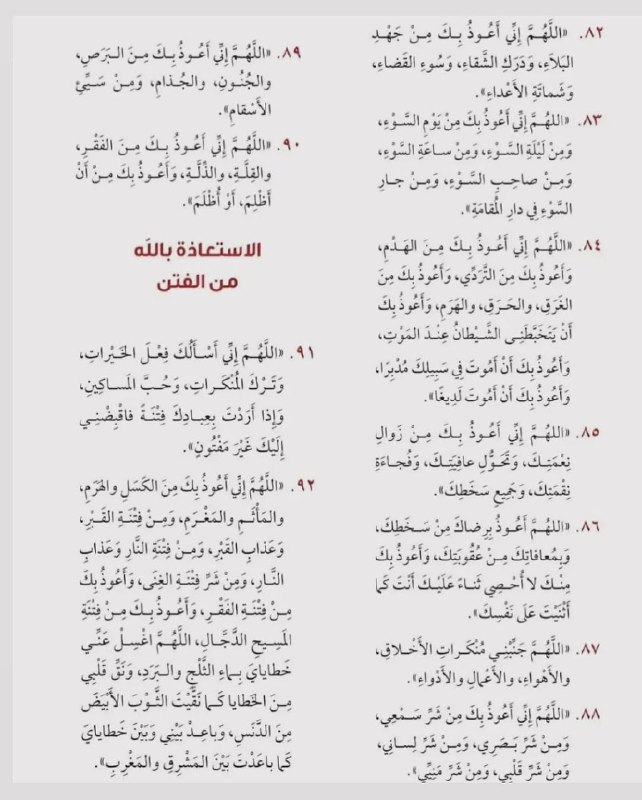 ٨٢. «اللَّهُمَّ إِنِّي أَعُوذُ بِكَ مِنْ جَهْدِ
البَلَاءِ، وَدَرَكِ الشَّقَاءِ، وَسُوءِ القَضَاءِ،
وَشَمَاتَةِ الأَعْدَاءِ».
٨٣. «اللهُمَّ إِنِّي أَعُوذُ بِكَ مِنْ يَوْمِ السَّوْءِ،
وَمِنْ لَيْلَةِ السَّوْءِ، وَمِنْ سَاعَةِ السَّوْءِ،
وَمِنْ صَاحِبِ السَّوْءِ، وَمِنْ جارِ
السَّوْءِ فِي دارِ المُقامَةِ».
٨٤. «اللَّهُمَّ إِنِّي أَعُوذُ بِكَ مِنَ الهَدْمِ،
وَأَعُوذُ بِكَ مِنَ التَّرَدِّي، وَأَعُوذُ بِكَ مِنَ
الغَرَقِ، والحَرَقِ، والهَرَمِ، وَأَعُوذُ بِكَ
أَنْ يَتَخَبَّطَنِي الشَّيْطانُ عِنْدَ المَوْتِ،
وَأَعُوذُ بِكَ أَنْ أَمُوتَ فِي سَبِيلِكَ مُدْبِرًا،
وَأَعُوذُ بِكَ أَنْ أَمُوتَ لَدِيغًا».
٨٥. «اللهُمَّ إِنِّي أَعُوذُ بِكَ مِنْ زَوالِ
نِعْمَتِكَ، وَتَحَوُّلِ عافِيَتِكَ، وَفُجاءَةِ
نِقْمَتِكَ، وَجَمِيعِ سَخَطِكَ».
٨٦. «اللهُمَّ أَعُوذُ بِرِضاكَ مِنْ سَخَطِكَ،
وَبِمُعافاتِكَ مِنْ عُقُوبَتِكَ، وَأَعُوذُ بِكَ
مِنْكَ لا أُحْصِي ثَناءً عَلَيْكَ أَنْتَ كَما
أَثْنَيْتَ عَلَى نَفْسِكَ».
٨٧. «اللَّهُمَّ جَنِّبْنِي مُنْكَراتِ الأَخْلاقِ،
والأَهْواءِ، والأَعْمالِ والأَدْواءِ».
٨٨. «اللَّهُمَّ إِنِّي أَعُوذُ بِكَ مِنْ شَرِّ سَمْعِي،
وَمِنْ شَرِّ بَصَرِي، وَمِنْ شَرِّ لِسانِي،
وَمِنْ شَرِّ قَلْبِي، وَمِنْ شَرِّ مَنِيِّي».
٨٩. «اللَّهُمَّ إِنِّي أَعُوذُ بِكَ مِنَ البَرَصِ،
والجُنُونِ، والجُذامِ، وَمِنْ سَيِّئِ
الأَسْقامِ».
٩٠. «اللَّهُمَّ إِنِّي أَعُوذُ بِكَ مِنَ الفَقْرِ،
والقِلَّةِ، والذِّلَّةِ، وَأَعُوذُ بِكَ مِنْ أَنْ
أَظْلِمَ، أَوْ أُظْلَمَ».
الاستعاذة بالله
من الفتن
٩١. «اللَّهُمَّ إِنِّي أَسْأَلُكَ فِعْلَ الخَيْراتِ،
وَتَرْكَ المُنْكَراتِ، وَحُبَّ المَساكِينِ،
وَإِذا أَرَدْتَ بِعِبادِكَ فِتْنَةً فاقْبِضْنِي
إِلَيْكَ غَيْرَ مَفْتُونٍ».
٩٢. «اللَّهُمَّ إِنِّي أَعُوذُ بِكَ مِنَ الكَسَلِ والهَرَمِ،
والمَأْثَمِ والمَغْرَمِ، وَمِنْ فِتْنَةِ القَبْرِ،
وَعَذابِ القَبْرِ، وَمِنْ فِتْنَةِ النَّارِ وَعَذابِ
النَّارِ، وَمِنْ شَرِّ فِتْنَةِ الغِنَى، وَأَعُوذُ بِكَ
مِنْ فِتْنَةِ الفَقْرِ، وَأَعُوذُ بِكَ مِنْ فِتْنَةِ
المَسِيحِ الدَّجَّالِ، اللَّهُمَّ اغْسِلْ عَنِّي
خَطايايَ بِماءِ الثَّلْجِ والبَرَدِ، وَنَقِّ قَلْبِي
مِنَ الخَطايا كَما نَقَّيْتَ الثَّوْبَ الأَبْيَضَ
مِنَ الدَّنَسِ، وَباعِدْ بَيْنِي وَبَيْنَ خَطايايَ
كَما باعَدْتَ بَيْنَ المَشْرِقِ والمَغْرِبِ».